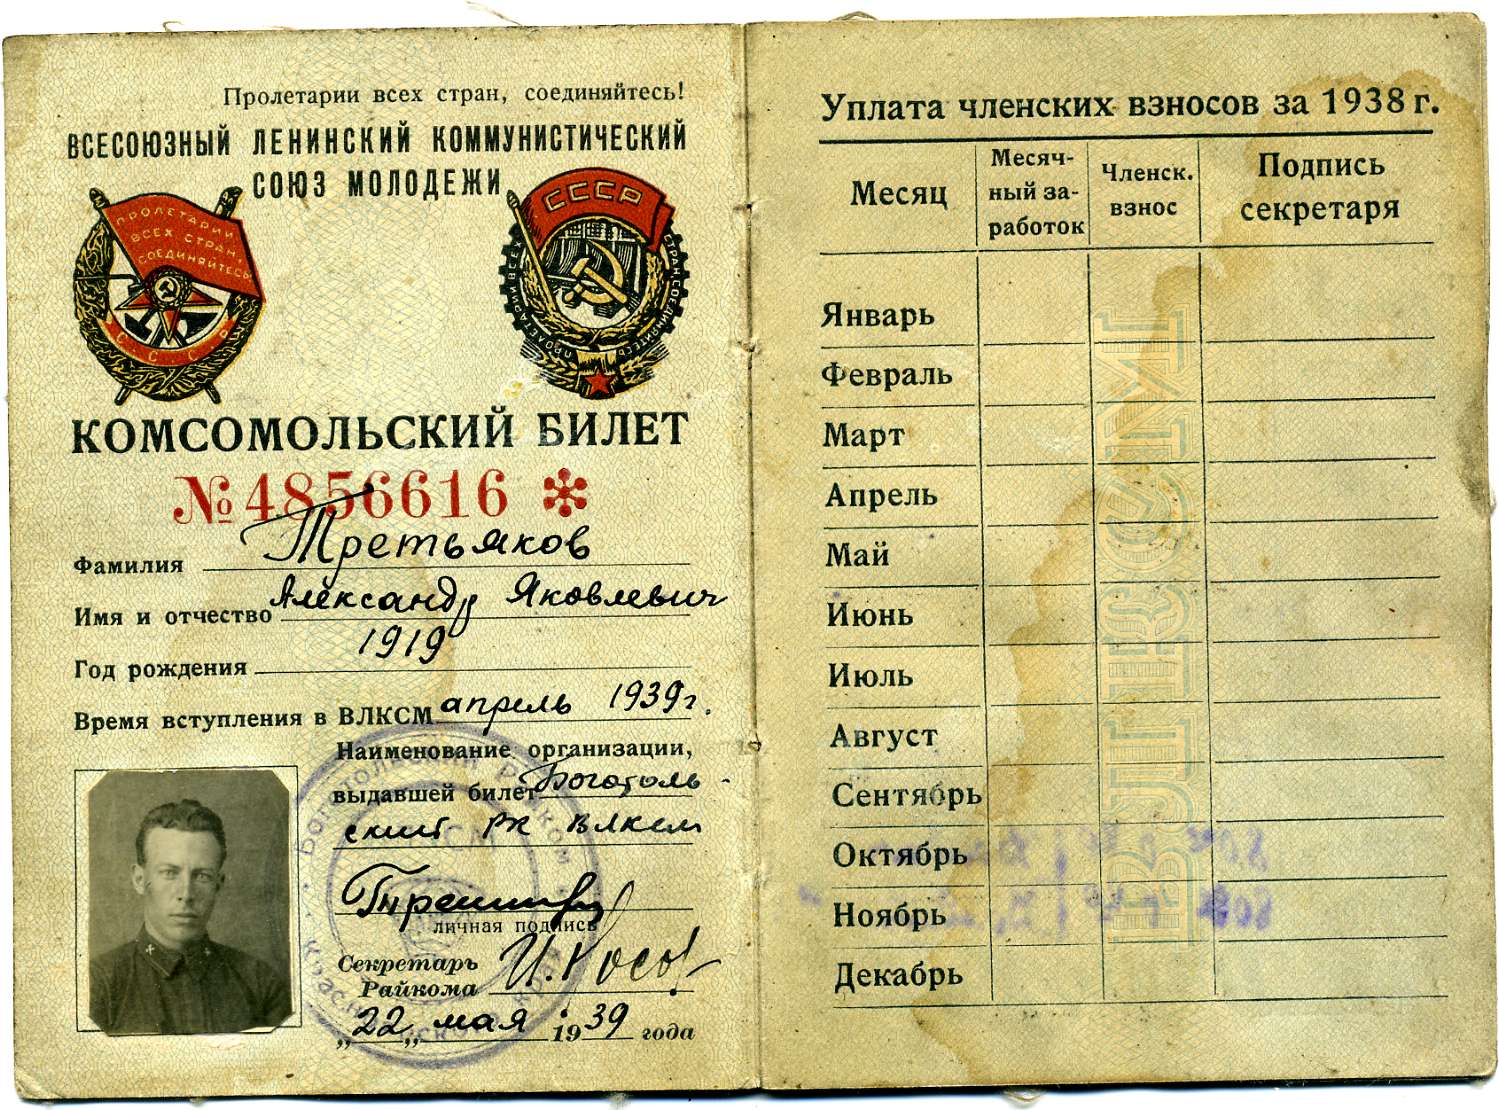 Пролетарии всех стран, соединяйтесь!
ВСЕСОЮЗНЫЙ ЛЕНИНСКИЙ КОММУНИСТИЧЕСКИЙ
СОЮЗ МОЛОДЕЖИ
ПРОЛЕТАРИИ
ВСЕХ СТРАН,
СОЕДИНЯЙТЕСЬ
СССР
СССР
ПРОЛЕТАРИИ ВСЕХ СТРАН, СОЕДИНЯЙТЕСЬ
КОМСОМОЛЬСКИЙ БИЛЕТ
№ 4856616
Фамилия Третьяков
Имя и отчество Александр Яковлевич
Год рождения 1919
Время вступления в ВЛКСМ апрель 1939 г.
Наименование организации,
выдавшей билет Боготоль-
ский РК ВЛКСМ
личная подпись
Секретарь
Райкома
„22„ мая 1939 года
Уплата членских взносов за 1938 г.
Месяц
Месяч-
ный за-
работок
Членск.
взнос
Подпись
секретаря
Январь
Февраль
Март
Апрель
Май
Июнь
Июль
Август
Сентябрь
Октябрь
Ноябрь
Декабрь
ВЛКСМ